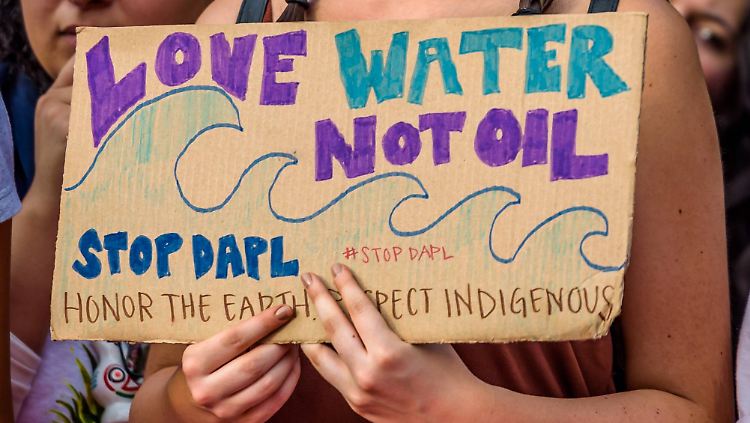 LOVE WATER
NOT OIL
STOP DAPL
#STOP DAPL
HONOR THE EARTH. RESPECT INDIGENOUS